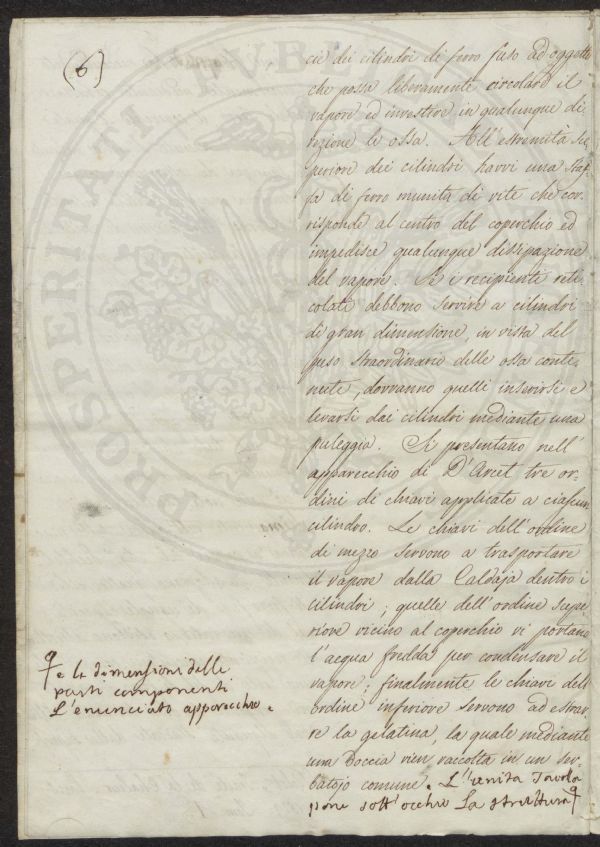 (6)
cie dei cilindri di ferro fuso ad oggetto
che possa liberamente circolare il
vapore ed investire in qualunque di-
rezione le ossa. All'estremità su-
periore dei cilindri havvi una staf-
fa di ferro munita di vite che cor-
risponde al centro del coperchio ed
impedisce qualunque dissipazione
del vapore. Se i recipienti reti-
colati debbono servire a cilindri
di gran dimensione, in vista del
peso straordinario delle ossa conte-
nute, dovranno quelli inserirsi e
levarsi dai cilindri mediante una
puleggia. Si presentano nell'
apparecchio di D'Arcet tre or-
dini di chiavi applicate a ciascun
cilindro. Le chiavi dell'ordine
di mezzo servono a trasportare
il vapore dalla Caldaja dentro i
cilindri; quelle dell'ordine supe-
riore vicino al coperchio vi portano
l'acqua fredda per condensare il
vapore; finalmente le chiavi dell'
ordine inferiore servono ad estrar-
re la gelatina, la quale mediante
una Doccia vien raccolta in un ser-
batojo comune. L'unita Tavola
pone sott'occhio la struttura
e le dimensioni delle
parti componenti
L'enunciato apparecchio.
PROSPERITATI PUBLIC